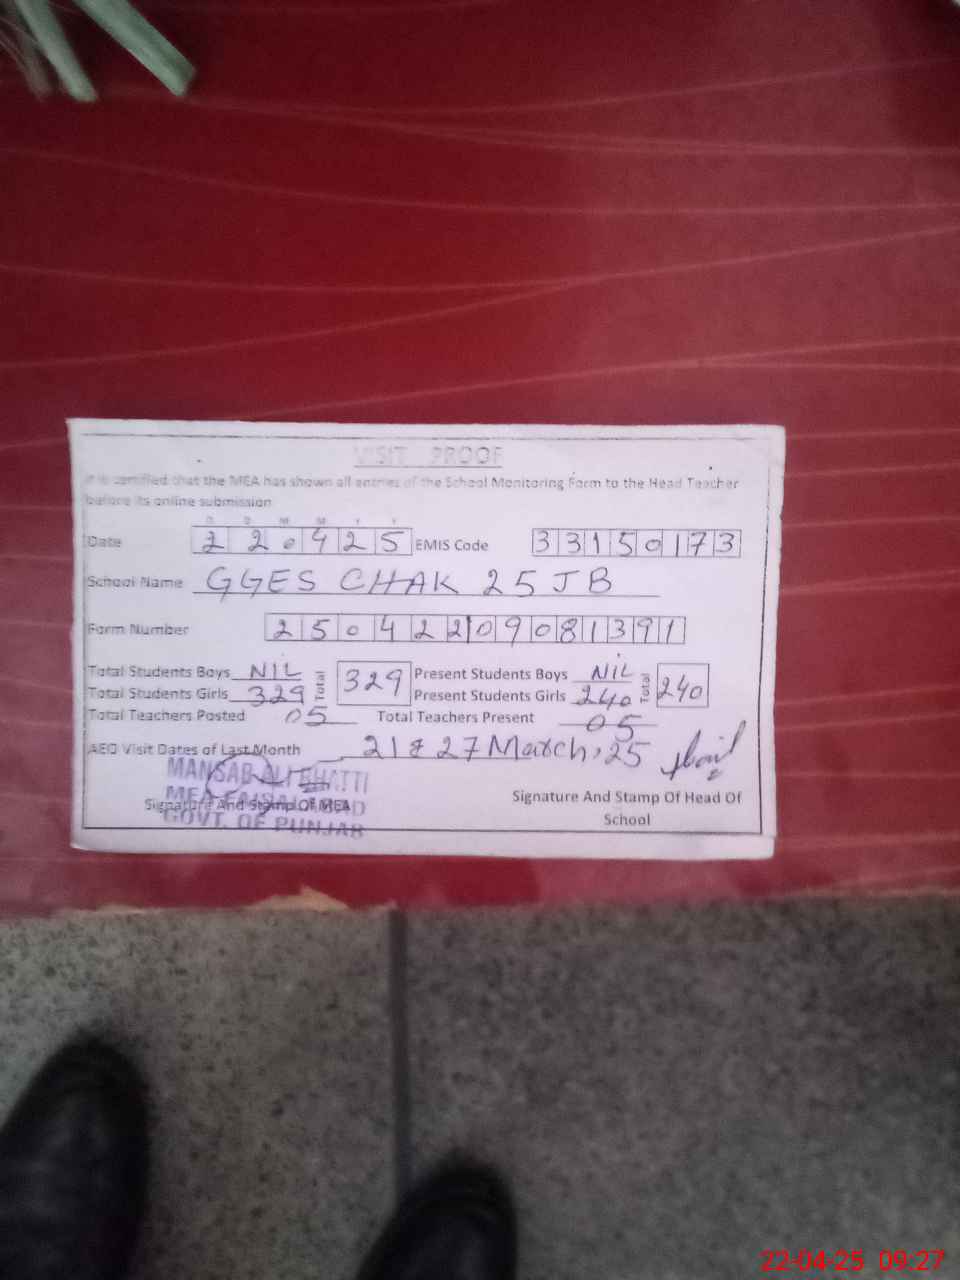 VISIT PROOF
It is certified that the MEA has shown all entries of the School Monitoring Form to the Head Teacher
before its online submission
D D M M Y Y
Date 220425 EMIS Code 33150173
School Name GGES CHAK 25 JB
Form Number 25042209081391
Total Students Boys NIL Total 329 Present Students Boys NIL Total 240
Total Students Girls 329 Present Students Girls 240
Total Teachers Posted 05 Total Teachers Present 05
AEO Visit Dates of Last Month 21 & 27 March, 25
MANSAB ALI BHATTI
MEA FAISALABAD
Signature And Stamp Of MEA
GOVT. OF PUNJAB
Signature And Stamp Of Head Of
School
22-04-25 09:27